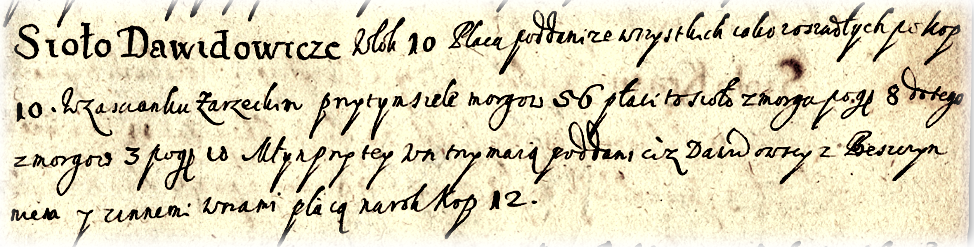 Sioło Dawidowicze Włok 10 Płacą poddani ze wszystkich całko rosiadłych po kop
10. W zascianku Zarzeckim przy tym siele morgow 56 płaci to sioło z morga po gr 8 do tego
z morgow 3 po gr 10 Młyn przy tey wn trzymaią poddani ciż Dawidowcy z
y z innemi wniami płacą na rok kop 12.